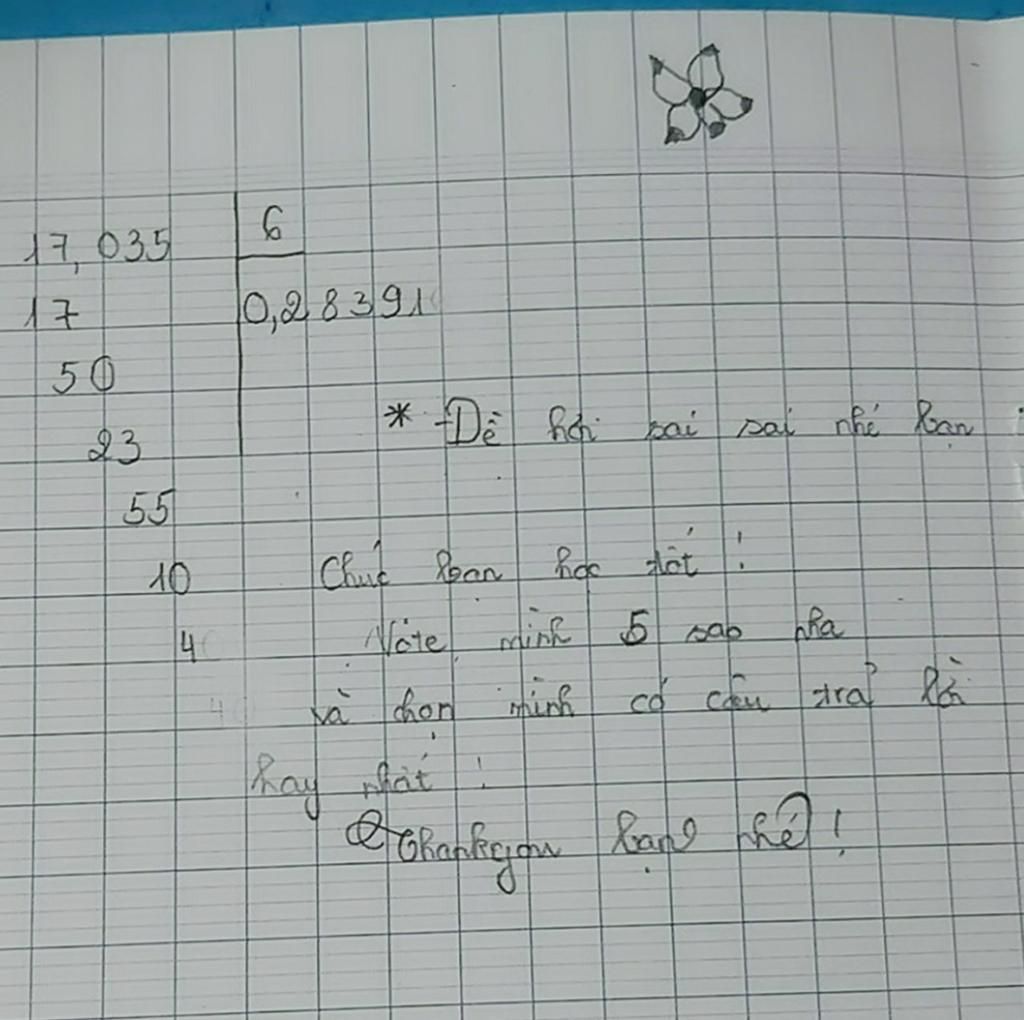 17,035 6
17 0,28391
50
23 * Đề hơi sai sai nhé bạn :
55
10 Chúc bạn học tốt !
4 Vote mình 5 sao nha
và chọn mình có câu trả lời
hay nhất !
Thankyou bạn nhé !